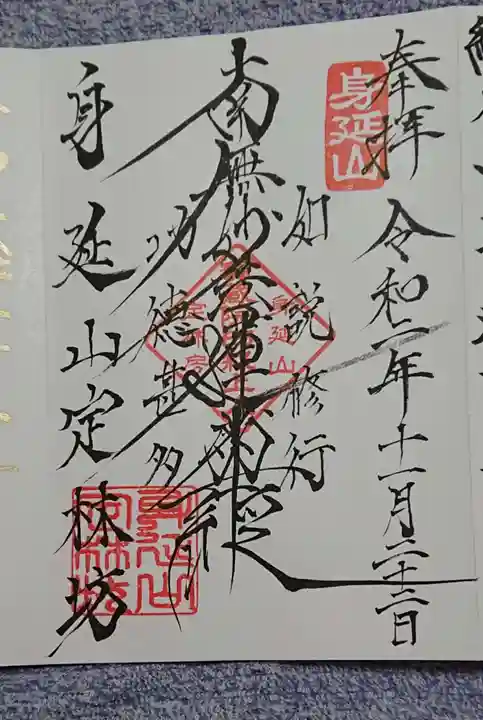 奉拝 令和二年十一月二十二日
身延山
如説修行
南無妙法蓮華経
功徳甚多
身延山定林坊
身延山
定林房